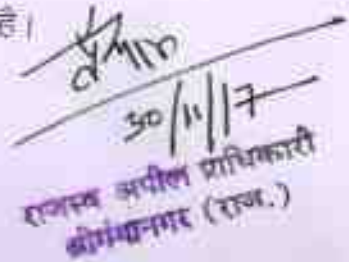 है।
30/11/17
राजस्व अपील प्राधिकारी
श्रीगंगानगर (राज.)